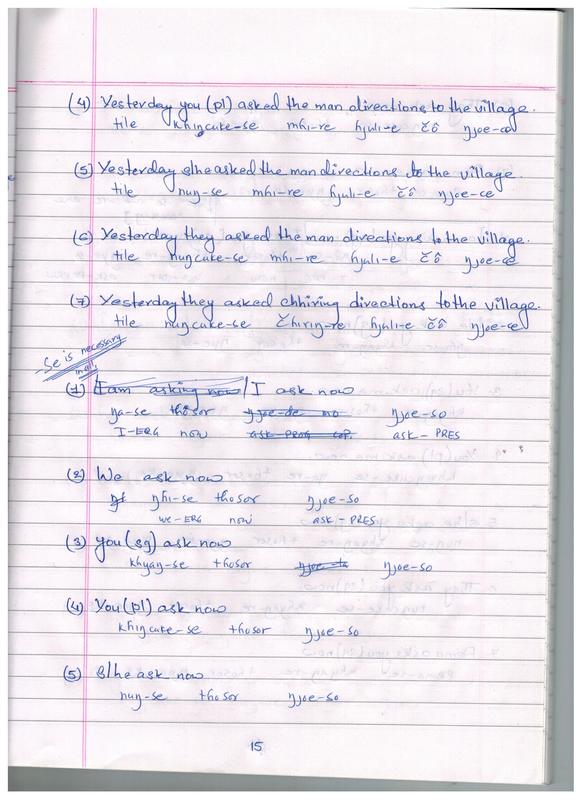 (4) Yesterday you (pl) asked the man directions to the village.
tile khincuke-se mhi-re hjuli-e čõ ŋjoe-ce
(5) Yesterday s/he asked the man directions to the village.
tile nuŋ-se mhi-re hjuli-e čõ ŋjoe-ce
(6) Yesterday they asked the man directions to the village.
tile nuŋcuke-se mhi-re hjuli-e čõ ŋjoe-ce
(7) Yesterday they asked chhiring directions to the village.
tile nuŋcuke-se čhiriŋ-re hjuli-e čõ ŋjoe-ce
Se is necessary
in all
(1) I am asking now/I ask now
ŋa-se thosor ŋjoe-de mo ŋjoe-so
I-ERG now ask PROG COP. ask-PRES
(2) We ask now
ŋhi-se thosor ŋjoe-so
we-ERG now ask-PRES
(3) you (sg) ask now
khyaŋ-se thosor ŋjoe-so
(4) You (pl) ask now
khincuke-se thosor ŋjoe-so
(5) s/he ask now
nuŋ-se thosor ŋjoe-so
15